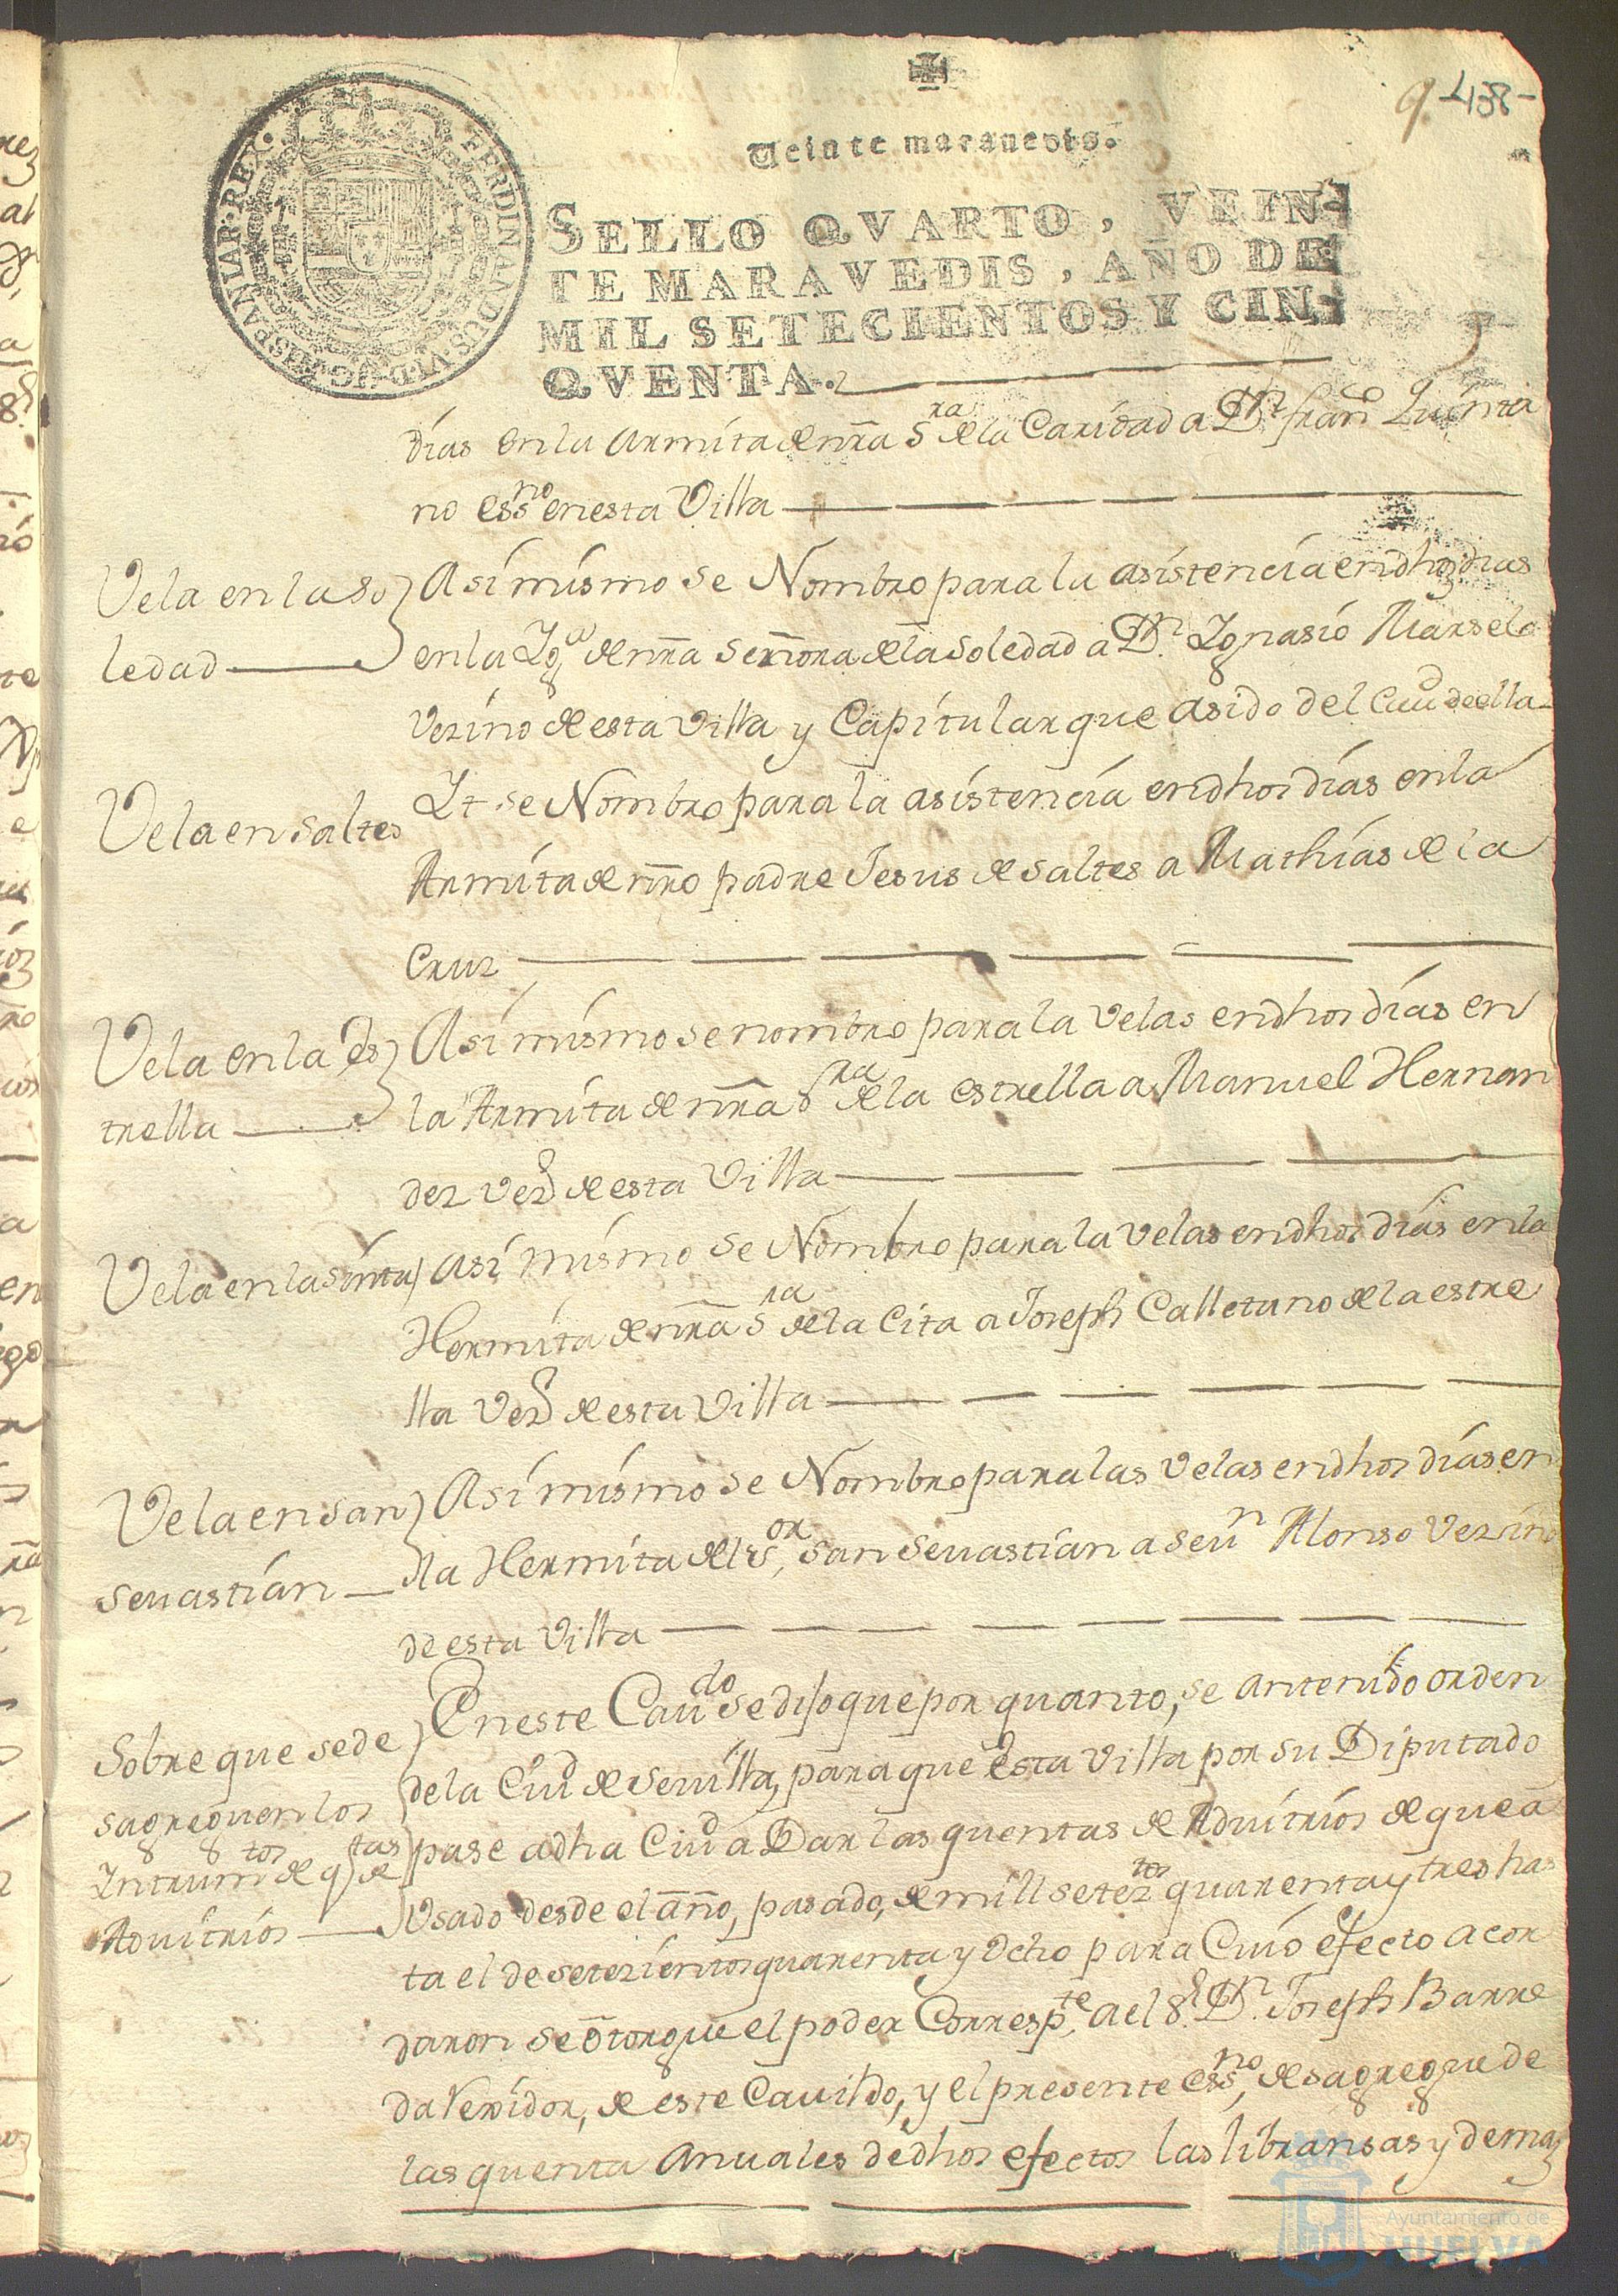 9 438-
Veinte maravedis.
SELLO QVARTO, VEIN-
TE MARAVEDIS, AÑO DE
MIL SETECIENTOS Y CIN-
QVENTA.
FERDINANDUS.VI.D.G.HISPANIAR.REX.
días en la Armita de nra Sra de la Caridad a Dn. Franco Quinta
no essno en esta Villa
Vela en la So
ledad
Asi mismo se Nombro para la asistencia en dhos dias
en la Iga de nra Señora de la Soledad a Dn. Ignasio Marselo
Vezino de esta Villa y Capitular que a sido del Cavdo de ella
Vela en saltes
It. se Nombro para la asistencia en dhos días en la
Armita de nro padre Jesus de Saltes a Mathías de la
Cruz
Vela en la es
trella
Asi mismo se nombro para la Velas en dhos días en
la Armita de nra Sra de la estrella a Manuel Hernan
dez Vezo de esta Villa
Vela en la sinta
Asi mismo se Nombro para la Velas en dhos días en la
Hermita de nra Sra de la Cita a Joseph Calletano de la estre
lla Vezo de esta Villa
Vela en san
sevastían
Asi mismo se Nombro para las Velas en dhos días en
la Hermita del Sor, san Sevastían a Sevn Alonso Vezino
de esta Villa
Sobre que se de
sagreguen los
Intrumtos de qtas de
Advitrios
En este Cavdo se dijo que por quanto, se an tenido orden
de la Ciud de Sevilla, para que esta Villa por su Diputado
pase a dha Ciud a Dar las quentas de Advitrios de que a
Vsado desde el año, pasado, de mill seteztos quarenta y tres has
ta el de setezientos quarenta y Ocho para Cuio efecto acor
daron se otorgue el poder Correspte, a el Sr. Dn. Joseph Barre
da Rexidor, de este Cavildo, y el presente essno, desagregue de
las quenta Anuales de dhos efectos las libransas y demas
Ayuntamiento de
HUELVA